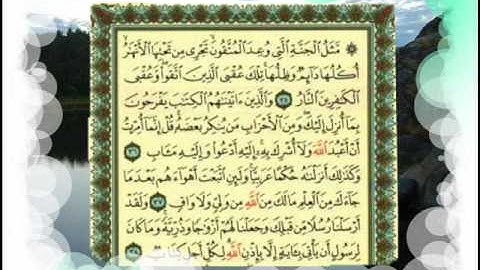 ۞ مَّثَلُ الْجَنَّةِ الَّتِي وُعِدَ الْمُتَّقُونَ تَجْرِي مِن تَحْتِهَا الْأَنْهَٰرُ
أُكُلُهَا دَآئِمٌ وَظِلُّهَا تِلْكَ عُقْبَى الَّذِينَ اتَّقَوا وَّعُقْبَى
الْكَٰفِرِينَ النَّارُ ﴿٣٥﴾ وَالَّذِينَ ءَاتَيْنَٰهُمُ الْكِتَٰبَ يَفْرَحُونَ
بِمَآ أُنزِلَ إِلَيْكَ وَمِنَ الْأَحْزَابِ مَن يُنكِرُ بَعْضَهُۥ قُلْ إِنَّمَآ أُمِرْتُ
أَنْ أَعْبُدَ اللَّهَ وَلَآ أُشْرِكَ بِهِۦٓ إِلَيْهِ أَدْعُوا وَإِلَيْهِ مَـَٔابِ ﴿٣٦﴾
وَكَذَٰلِكَ أَنزَلْنَٰهُ حُكْمًا عَرَبِيًّا وَلَئِنِ اتَّبَعْتَ أَهْوَآءَهُم بَعْدَمَا
جَآءَكَ مِنَ الْعِلْمِ مَالَكَ مِنَ اللَّهِ مِن وَلِيٍّ وَلَا وَاقٍ ﴿٣٧﴾ وَلَقَدْ
أَرْسَلْنَا رُسُلًا مِّن قَبْلِكَ وَجَعَلْنَا لَهُمْ أَزْوَٰجًا وَذُرِّيَّةً وَمَاكَانَ
لِرَسُولٍ أَن يَأْتِيَ بِـَٔايَةٍ إِلَّا بِإِذْنِ اللَّهِ لِكُلِّ أَجَلٍ كِتَابٌ ﴿٣٨﴾